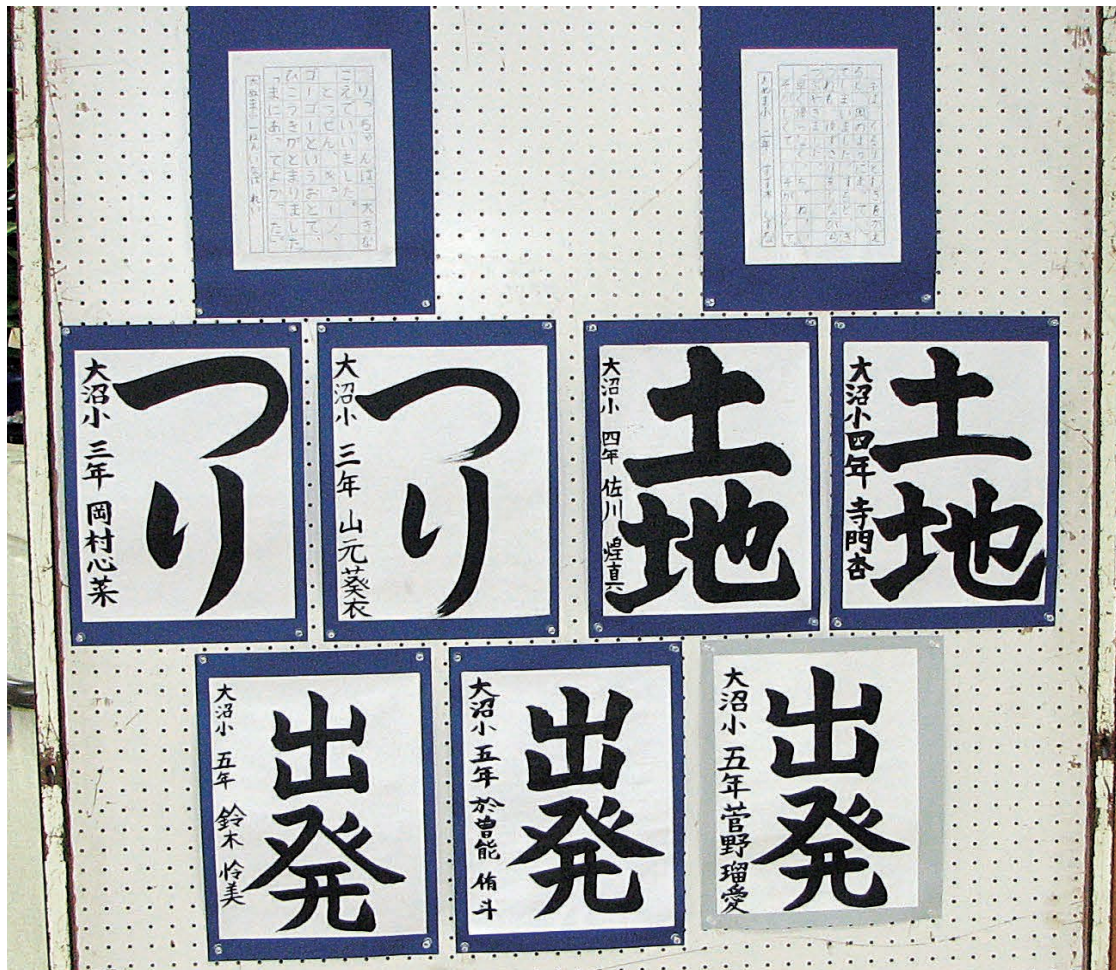 りっちゃんは、大きな
こえでいいました。
とつぜん、キューン、
ゴーゴーというおとで、
ひこうきがとまりました
「まにあってよかった。
大ぬま小一ねん
てしまいました。すると、
つり
大沼小 三年 岡村心菜
つり
大沼小 三年 山元葵衣
土地
大沼小 四年 佐川 煌真
土地
大沼小四年 寺門杏
出発
大沼小 五年 鈴木 怜美
出発
大沼小 五年 於曽能 侑斗
出発
大沼小 五年 菅野瑠愛